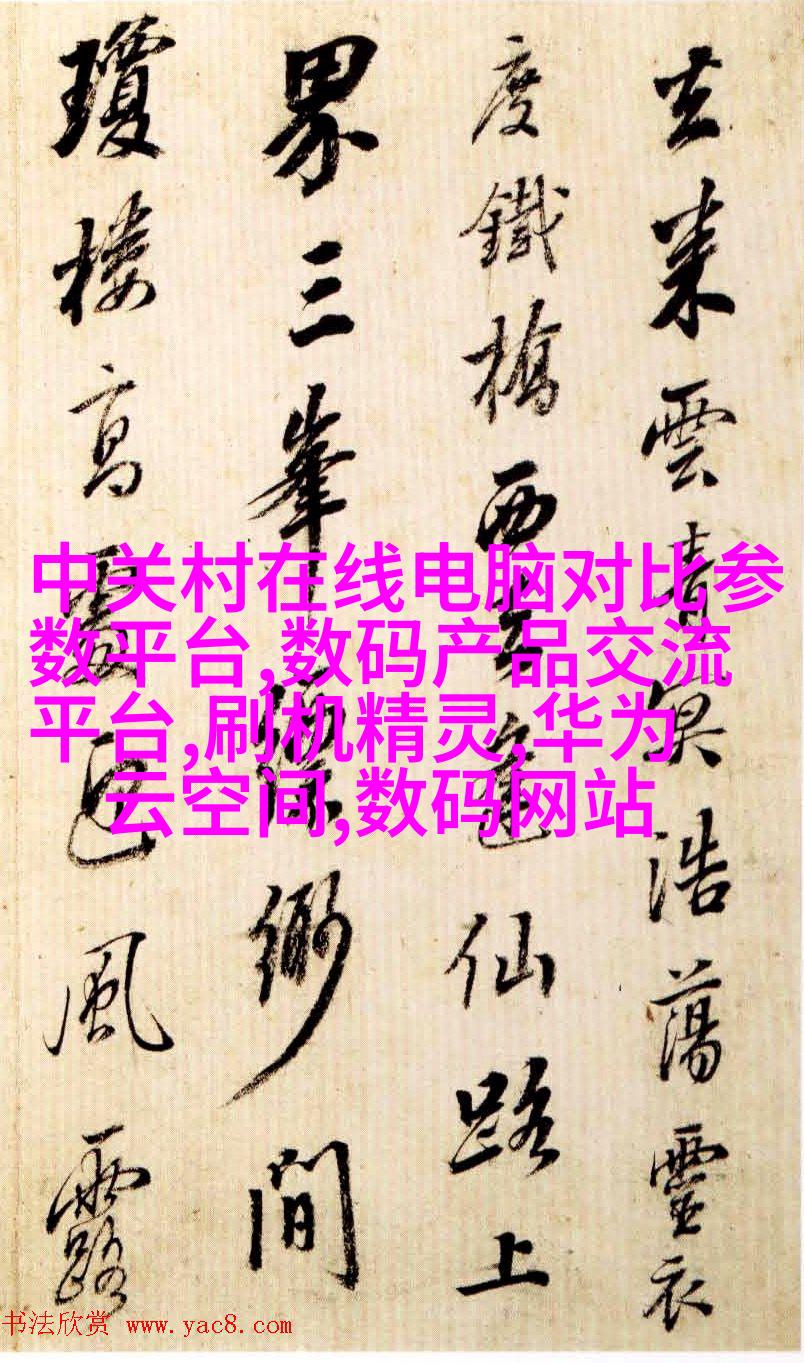 去来雲青冥浩蕩靈衣
度鐵橋西仙路上
界三峯緲間
瓊樓高處風露
中关村在线电脑对比参
数平台,数码产品交流
平台,刷机精灵,华为
云空间,数码网站
书法欣赏 www.yac8.com